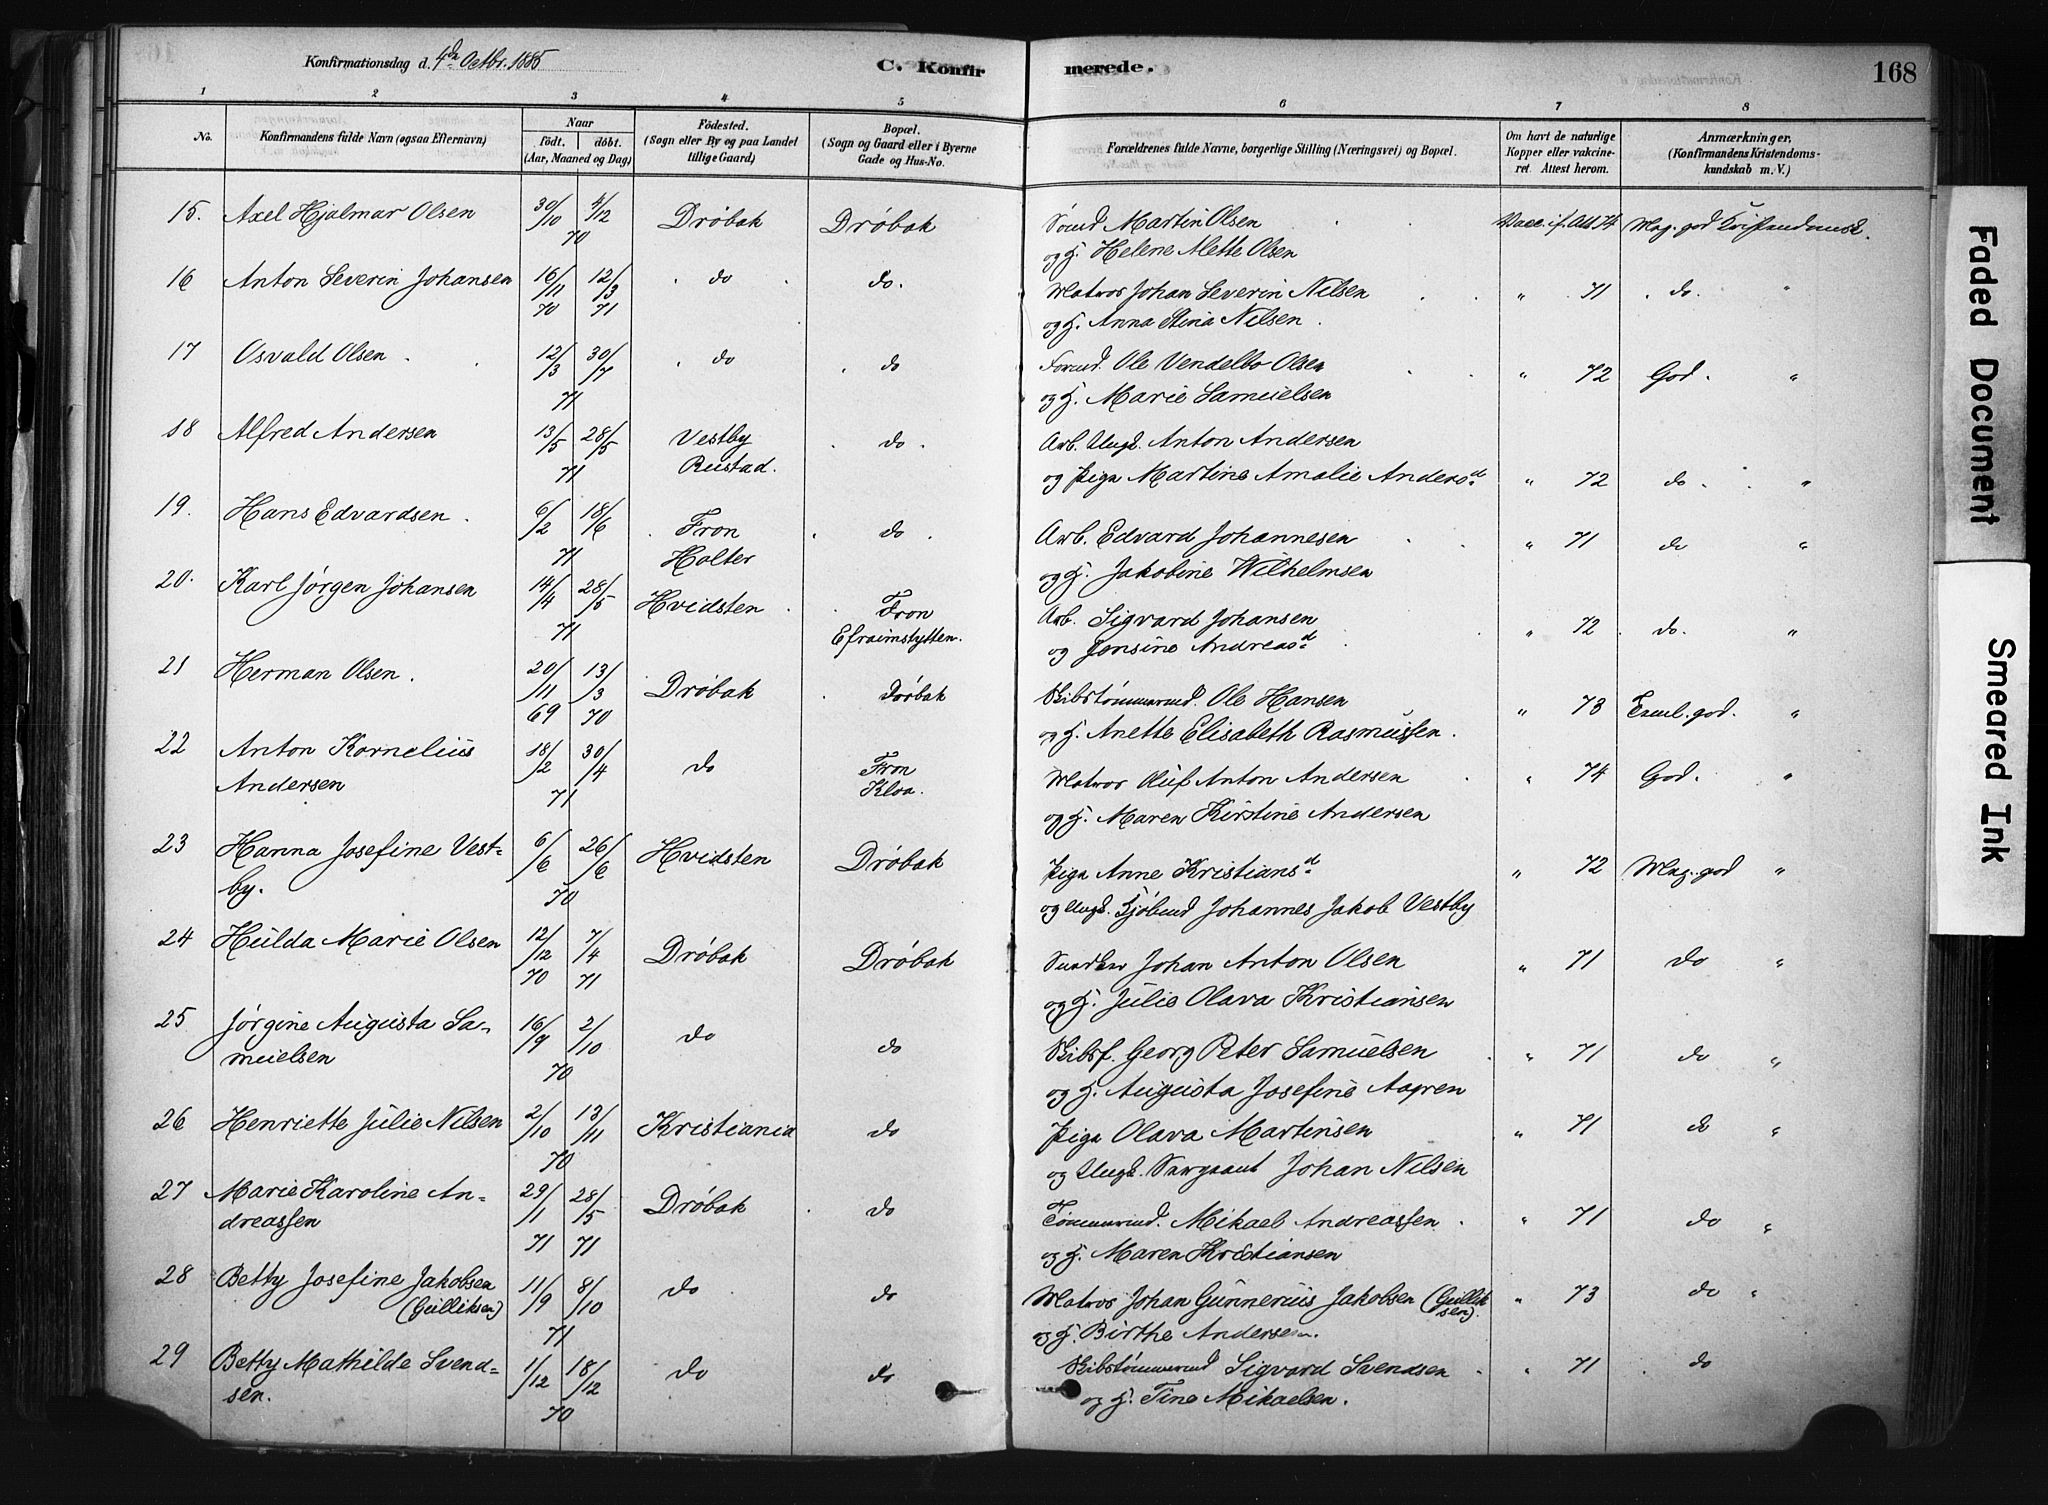 Konfirmationsdag d. 4de Octbr. 1885
C. Konfir merede. 168
1 2 3 4 5 6 7 8
No. Konfirmandens fulde Navn (ogsaa Efternavn) Naar födt. döbt. (Aar, Maaned og Dag) Födested. (Sogn eller By og paa Landet tillige Gaard) Bopæl. (Sogn og Gaard eller i Byerne Gade og Hus-No. Forældrenes fulde Navne, borgerlige Stilling (Næringsvei) og Bopæl. Om havt de naturlige Kopper eller vakcineret Attest herom. Anmærkninger, (Konfirmandens Kristendomskundskab m. V.)
15. Axel Hjalmar Olsen 30/10 4/12 70 Drøbak Drøbak Martin Olsen Vacc. if. Att 74 Mag. god
og H. Helene Alette Olsen
16 Anton Severin Johansen 16/11 70 12/3 71 do do. Matros Johan Severin Nilsen " 71 do. "
og H. Anna Stina Nilsen.
17 Osvald Olsen 12/3 30/7 71 do do Ole Vendelbo Olsen " 72 God. "
og H. Marie Samuelsen
18 Alfred Andersen 13/5 28/5 71 Vestby Rustad. do. Arb. Ungk. Anton Andersen
og Pige Martine Amalie Andersd " 72 do. "
19. Hans Edvardsen. 6/2 18/6 71 Fron Holter do. Arb. Edvard Johannesen " 71 do "
og H. Jakobine Wilhelmsen
20. Karl Jørgen Johansen 14/4 28/5 71 Hvidsten Fron Efraimstytten. Arb. Sigvard Johansen " 72 do. "
og Jensine Andreasd
21 Herman Olsen. 20/11 69 13/3 70 Drøbak Drøbak Skibstømmermd. Ole Hansen " 73 god. "
og H. Anette Elisabeth Rasmussen.
22 Anton Kornelius Andersen 18/2 30/4 71 do Fron Kloa. Matros Oluf Anton Andersen " 74 God. "
og H. Maren Kirstine Andersen
23 Hanna Josefine Vestby. 6/6 26/6 70 Hvidsten Drøbak Pige Anne Kristiansd " 72 Mag. god "
og Ungk. Johannes Jakob Vestby
24 Hulda Marie Olsen 12/12 70 7/4 71 Drøbak Drøbak Johan Anton Olsen " 71 do "
og H. Julie Olava Kristiansen
25 Jørgine Augusta Samuelsen 16/9 2/10 70 do do Skibsf. Georg Peter Samuelsen " 71 do "
og H. Augusta Josefine Aagren
26 Henriette Julie Nilsen 2/10 13/11 70 Kristiania do Pige Olava Martinsen " 71 do "
og Ungk. Johan Nilsen
27 Marie Karoline Andreassen 29/1 71 28/5 71 Drøbak do Tømmermd. Mikael Andreassen " 71 do "
og H. Maren Kristiansen
28 Betty Josefine Jakobsen (Gulliksen) 11/9 8/10 71 do do Matros Johan Gunnerius Jakobsen (Gulliksen). " 73 do "
og H. Birthe Andersen.
29 Betty Mathilde Svendsen. 1/12 18/12 70 do do Skibstømmermd Sigvard Svendsen " 71 do
og H. Tine Mikaelsen.
Faded Document
Smeared Ink